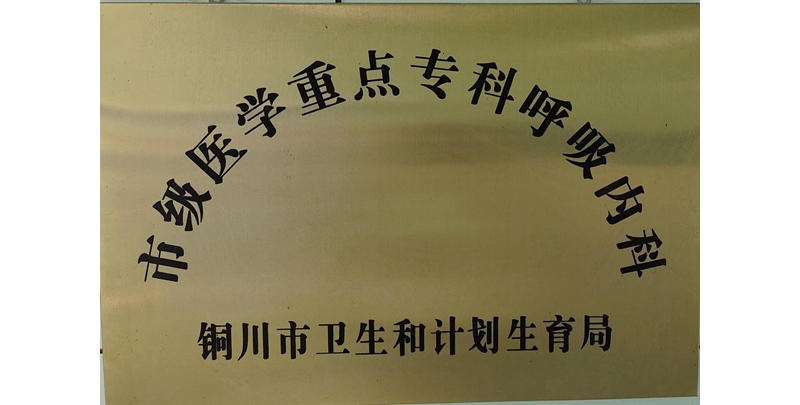 市级医学重点专科呼吸内科
铜川市卫生和计划生育局